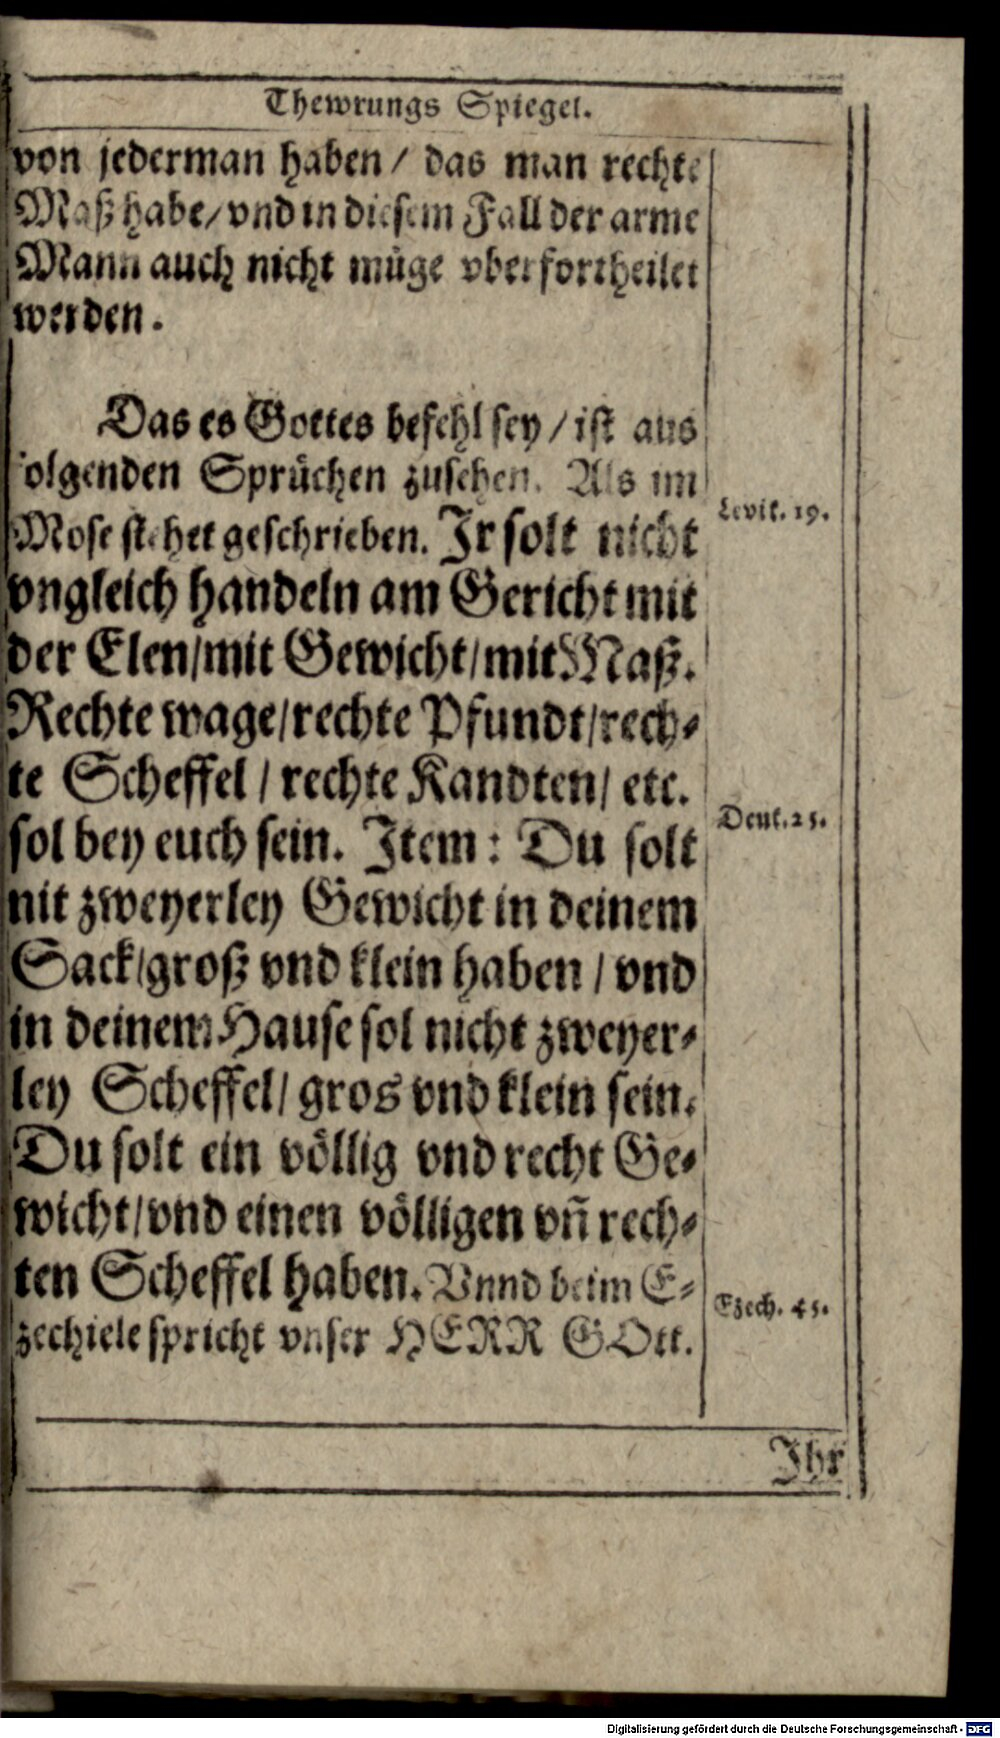 Thewrungs Spiegel.
von jederman haben / das man rechte
Maß habe / vnd in diesem Fall der arme
Mann auch nicht müge vberfortheilet
werden.
Das es Gottes befehl sey / ist aus
folgenden Sprüchen zusehen. Als im
Levit. 19.
Mose stehet geschrieben. Ir solt nicht
vngleich handeln am Gericht mit
der Elen / mit Gewicht / mit Maß.
Rechte wage / rechte Pfundt / rech-
te Scheffel / rechte Kandten / etc.
Deut. 25.
sol bey euch sein. Item: Du solt
nit zweyerley Gewicht in deinem
Sack / groß vnd klein haben / vnd
in deinem Hause sol nicht zweyer-
ley Scheffel / gros vnd klein sein.
Du solt ein völlig vnd recht Ge-
wicht / vnd einen völligen vñ rech-
ten Scheffel haben. Vnnd beim E-
Ezech. 45.
zechiele spricht vnser HERR GOtt.
Ihr
Digitalisierung gefördert durch die Deutsche Forschungsgemeinschaft - DFG